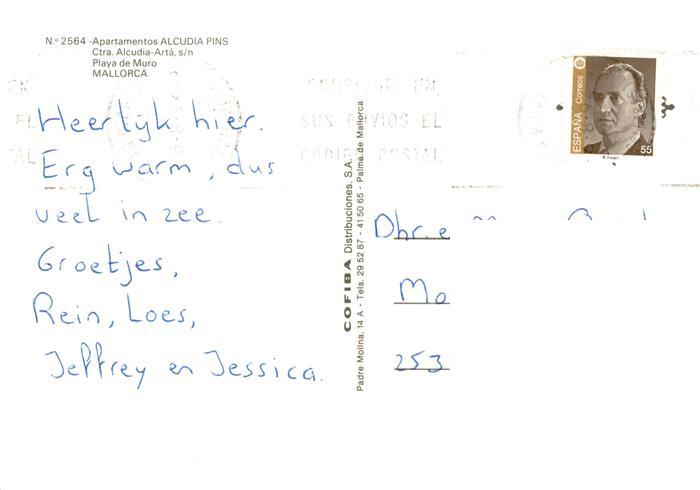 N.º 2564 -Apartamentos ALCUDIA PINS
Ctra. Alcudia-Artá, s/n
Playa de Muro
MALLORCA
Heerlijk hier.
Erg warm, dus
veel in zee.
Groetjes,
Rein, Loes,
Jeffrey en Jessica.
COFIBA Distribuciones, S.A.
Padre Molina, 14 A - Tels. 29 52 87 - 41 50 65 - Palma de Mallorca
SUS ENVIOS EL
CODIGO POSTAL
ESPAÑA Correos
55
Dhr. e
Mo
253